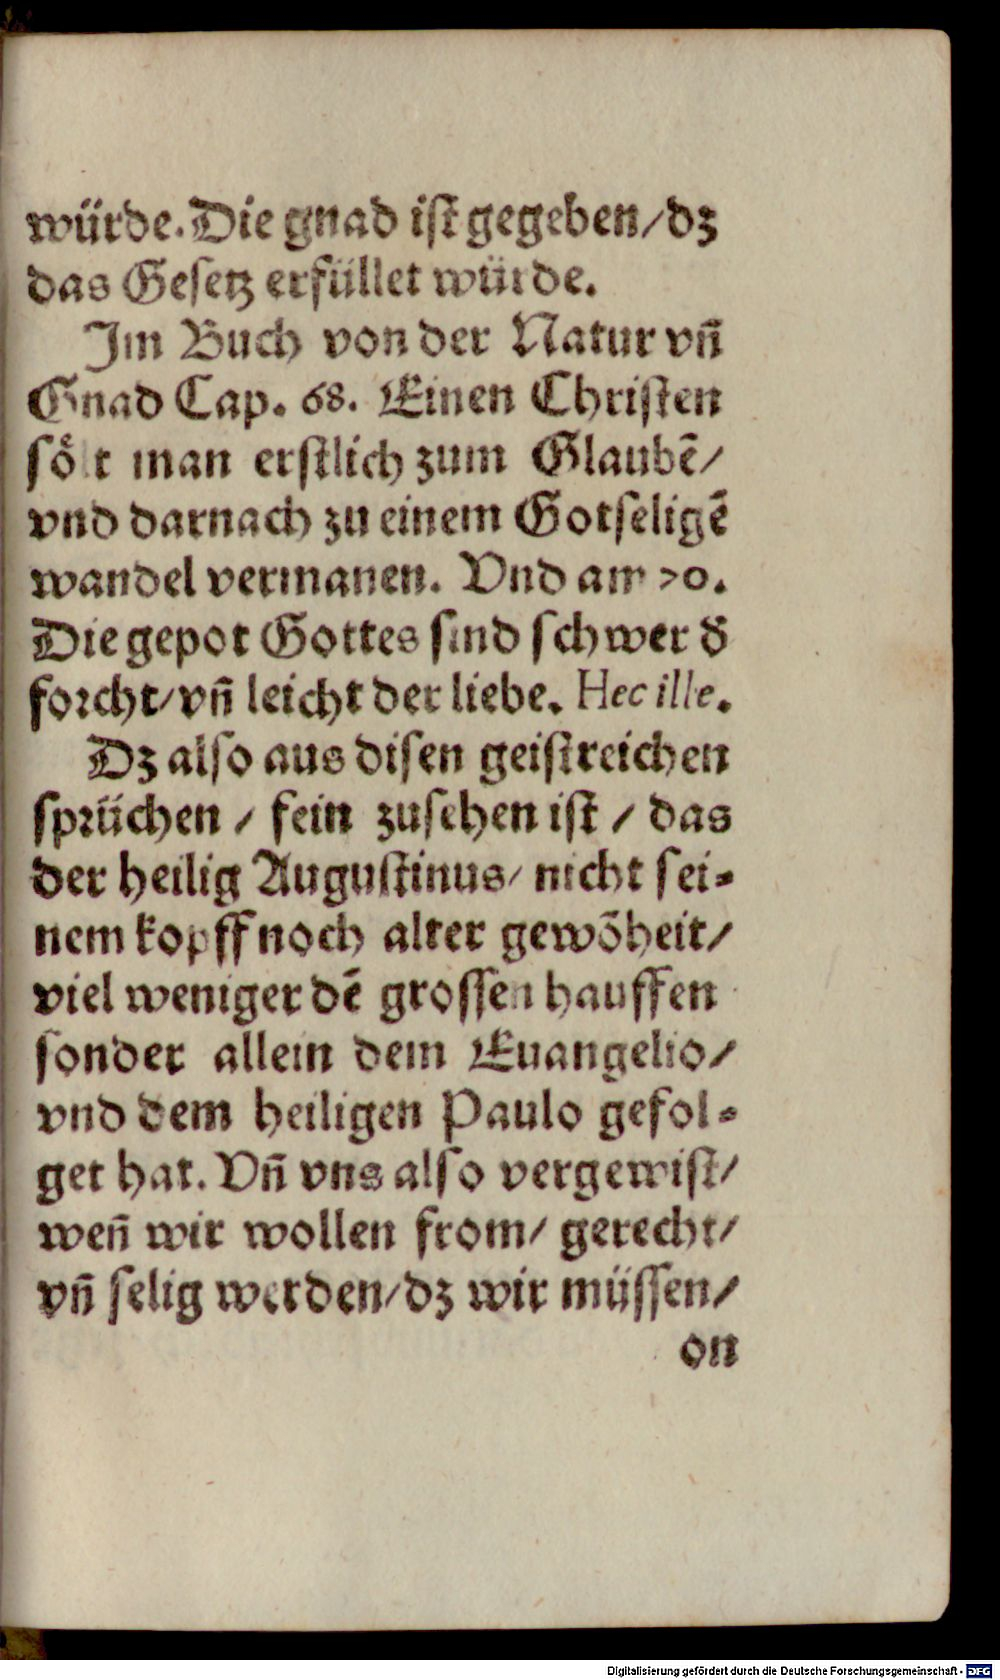 würde. Die gnad iſt gegeben/ dz
das Geſetz erfüllet würde.
Im Buch von der Natur vñ
Gnad Cap. 68. Einen Chriſten
ſoͤlt man erſtlich zum Glaubẽ/
vnd darnach zu einem Gotſeligẽ
wandel vermanen. Vnd am 70.
Die gepot Gottes ſind ſchwer d̃
forcht/ vñ leicht der liebe. Hec ille.
Dz alſo aus diſen geiſtreichen
ſprüchen / fein zuſehen iſt / das
der heilig Auguſtinus/ nicht ſei-
nem kopff noch alter gewõheit/
viel weniger dẽ groſſen hauffen
ſonder allein dem Euangelio/
vnd dem heiligen Paulo gefol-
get hat. Vñ vns alſo vergewiſt/
weñ wir wollen from/ gerecht/
vñ ſelig werden/ dz wir müſſen/
on
Digitalisierung gefördert durch die Deutsche Forschungsgemeinschaft - DFG